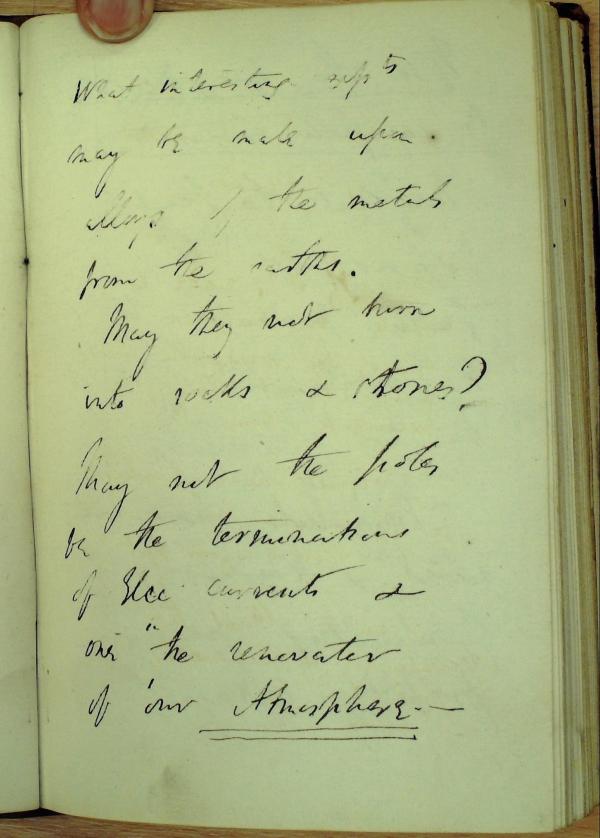 What interesting exp^ts
may be made upon
alloys of the metals
from the earths.
May they not burn
into rocks & stones?
May not the poles
be the terminations
of Elec currents &
one "the renovator
of 'our Atmosphere. —